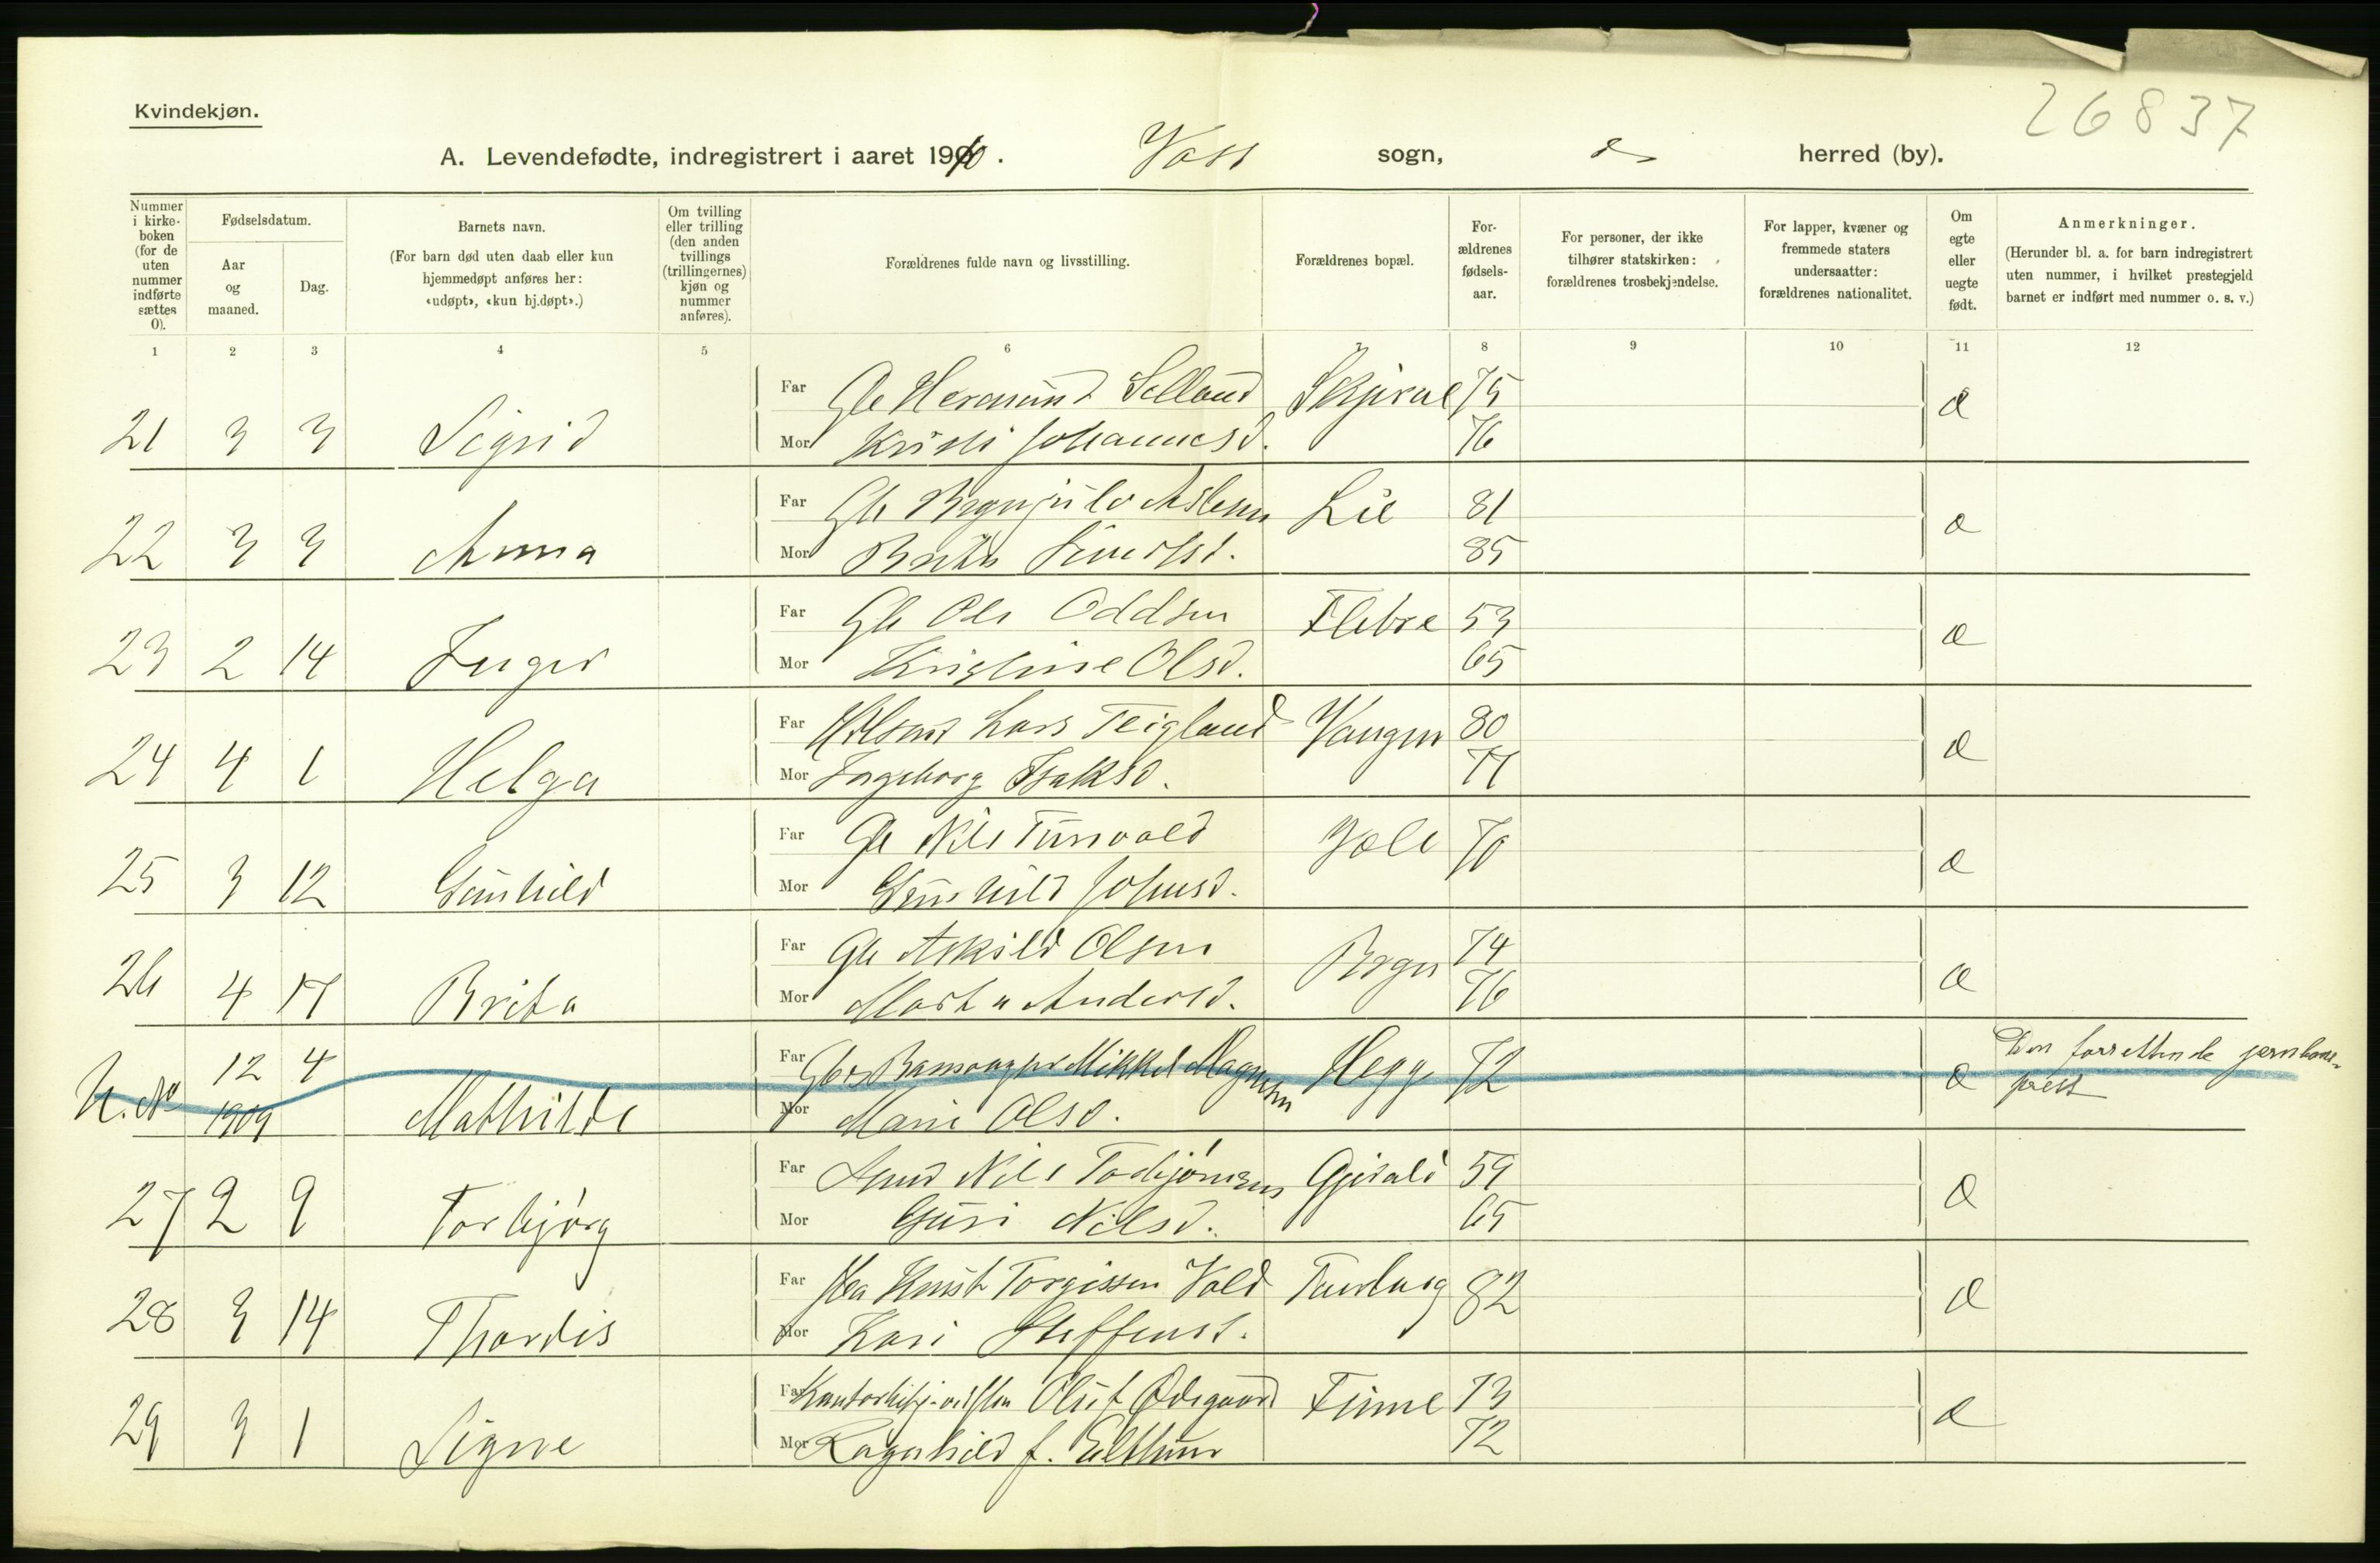 26837
Kvindekjøn.
A. Levendefødte, indregistrert i aaret 1910. Voss sogn, herred (by).
Nummer i kirke-boken (for de uten nummer indførte sættes 0).
Fødselsdatum.
Aar og maaned.
Dag.
Barnets navn.
(For barn død uten daab eller kun hjemmedøpt anføres her: «udøpt», «kun hj.døpt».)
Om tvilling eller trilling (den anden tvillings (trillingernes) kjøn og nummer anføres).
Forældrenes fulde navn og livsstilling.
Forældrenes bopæl.
For-ældrenes fødsels-aar.
For personer, der ikke tilhører statskirken: forældrenes trosbekjendelse.
For lapper, kvæner og fremmede staters undersaatter: forældrenes nationalitet.
Om egte eller uegte født.
Anmerkninger.
(Herunder bl. a. for barn indregistrert uten nummer, i hvilket prestegjeld barnet er indført med nummer o. s. v.)
1 2 3 4 5 6 7 8 9 10 11 12
Far Gbr Hermund Selland Skjerve 75 æ
21 3 3 Sigrid Mor Kristi Johannesd. 76
Far Gbr Brynjulv Aslesen Lie 81 æ
22 3 3 Anna Mor Brita Sjurdsd. 85
Far Gbr Ole Oddsen Flebre 53 æ
23 2 14 Inger Mor Kristine Olsd. 65
Far Lars Teigland Vangen 80 æ
24 4 1 Helga Mor Ingeborg Isaksd. 77
Far Gbr Nils Tunvald 70 æ
25 3 12 Gunhild Mor Gunhild Johnsd.
Far Gbr Askild Olsen 74 æ
26 4 17 Brita Mor Marta Andersd. 76
12 4 Far Mikkel Magnesen Hegg 72 æ Den forrettende jernbane-
U. No 1909 Mathilde Mor Marie Olsd. prest
Far Nils Torbjørnsen Gjerald 59 æ
27 2 9 Torbjørg Mor Guri Nilsd. 65
Far Knut Torgissen Vold 82 æ
28 3 14 Thordis Mor Kari Steffensd.
Far Oluf Ødegaard Finne 73 æ
29 3 1 Signe Mor Ragnhild f. 72